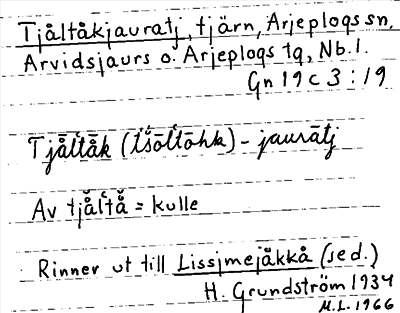 Tjåltåkjauratj, tjärn, Arjeplogs sn,
Arvidsjaurs o. Arjeplogs tg, Nb. l.
Gn 19 c 3 : 19
Tjåltåk (tšōltōhk) - jaurātj
Av tjåltå = kulle
Rinner ut till Lissjmejåkkå (se d.)
H. Grundström 1934
M.L. 1966